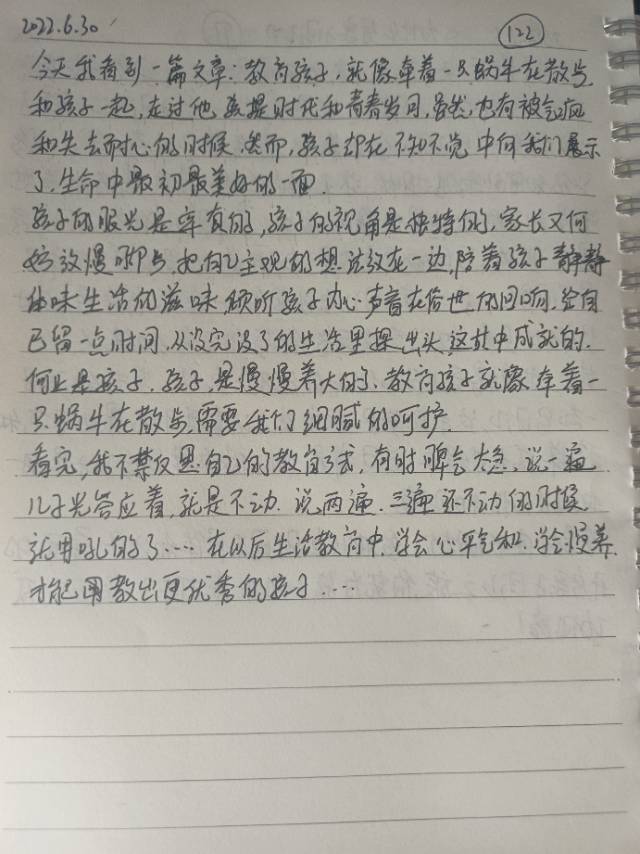 2022.6.30
122
今天我看到一篇文章:教育孩子,就像牵着一只蜗牛在散步
和孩子一起,走过他孩提时代和青春岁月,虽然,也有被气疯
和失去耐心的时候,然而,孩子却在不知不觉中向我们展示
了,生命中最初最美好的一面.
孩子的眼光是率真的,孩子的视角是独特的,家长又何
妨放慢脚步,把自己主观的想法放在一边,陪着孩子静静
体味生活的滋味,倾听孩子内心声音在俗世的回响,给自
己留一点时间,从没完没了的生活里探出头,这其中成就的.
何止是孩子.孩子是慢慢养大的、教育孩子就像牵着一
只蜗牛在散步,需要我们细腻的呵护.
看完,我不禁反思自己的教育方式,有时脾气大急,说一遍
儿子光答应着,就是不动.说两遍.三遍还不动的时候
就用吼的了....在以后生活教育中,学会心平气和,学会慢养
才能教出更优秀的孩子....